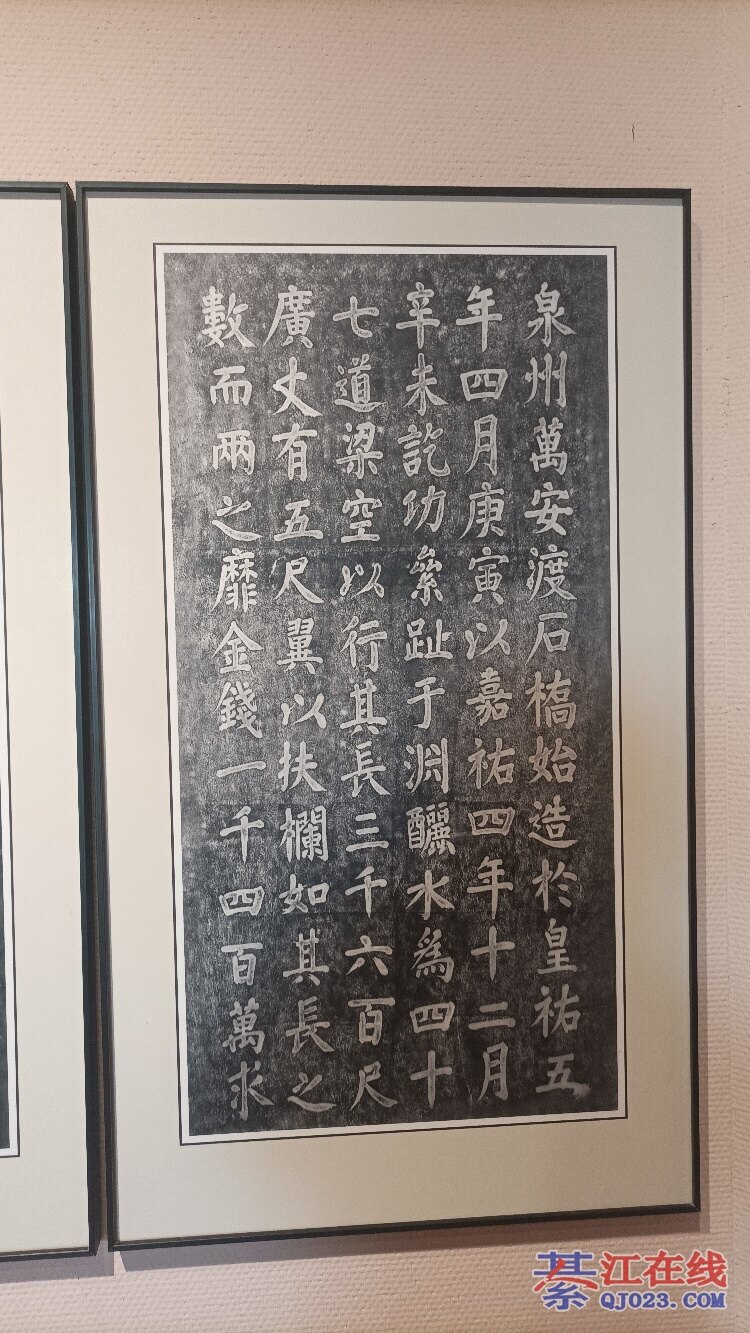 泉州萬安渡石橋始造於皇祐五
年四月庚寅以嘉祐四年十二月
辛未訖功絫趾于淵釃水為四十
七道梁空以行其長三千六百尺
廣丈有五尺翼以扶欄如其長之
數而兩之靡金錢一千四百萬求
綦江在线
QJ023.COM